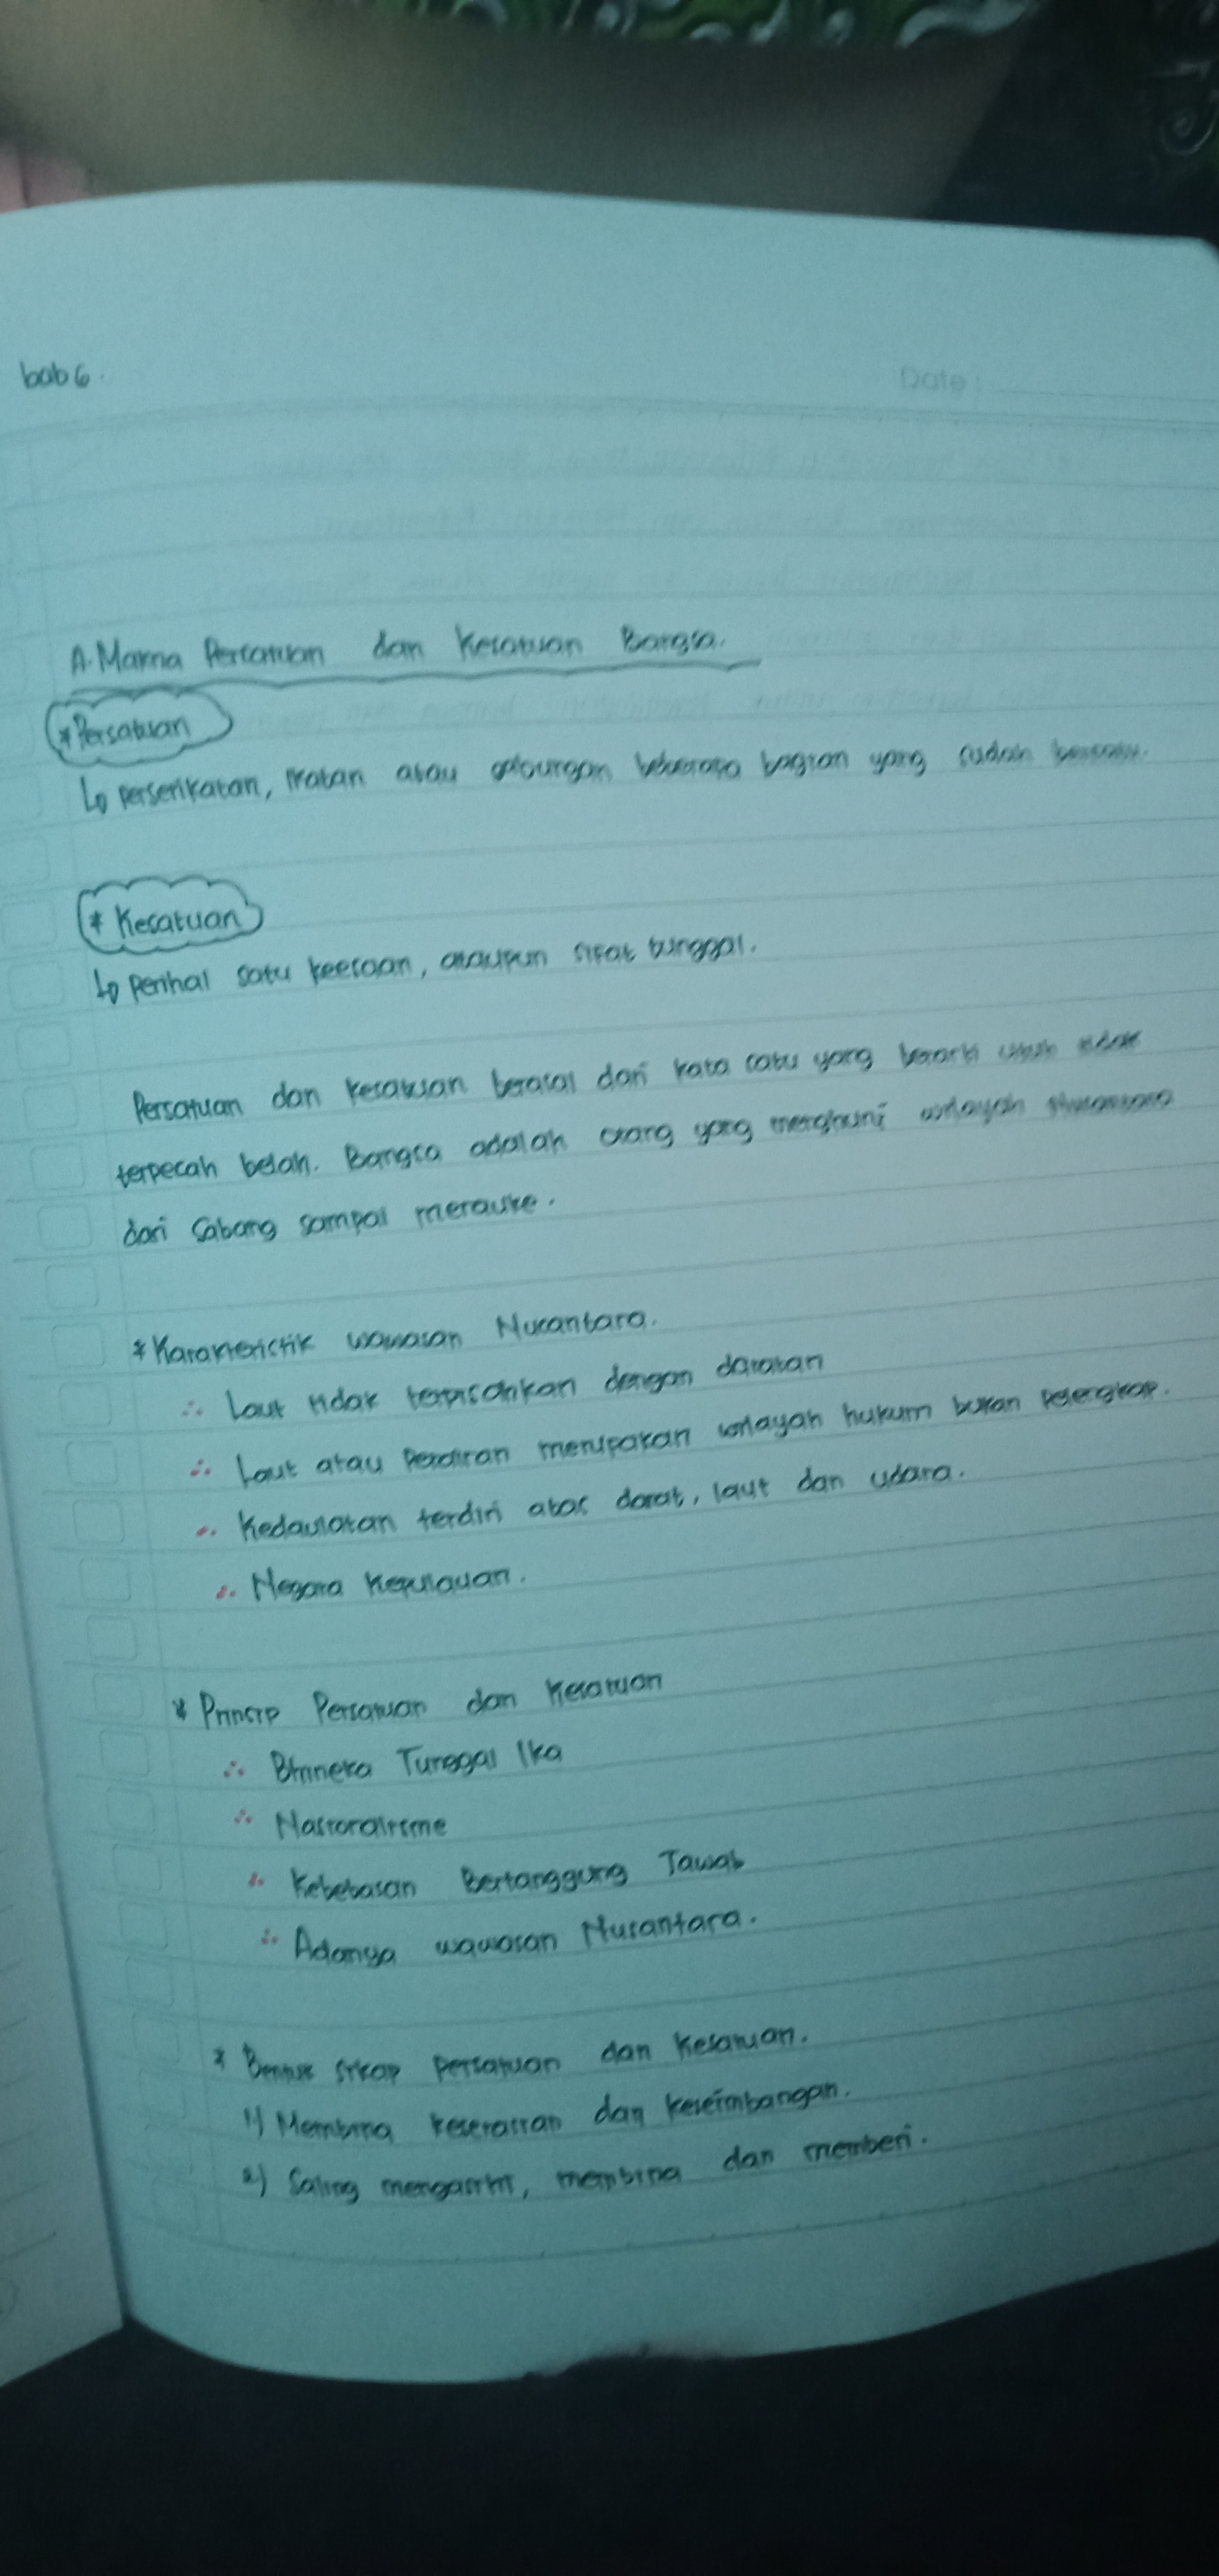 bab 6.
Date :
A. Makna Persatuan dan Kesatuan Bangsa.
* Persatuan
↳ perserikatan, ikatan atau golongan beberapa bagian yang sudah bersatu.
* Kesatuan
↳ perihal satu keesaan, ataupun sifat tunggal.
Persatuan dan kesatuan berasal dari kata satu yang berarti utuh tidak
terpecah belah. Bangsa adalah orang yang menghuni wilayah Nusantara
dari Sabang sampai merauke.
* Karakteristik wawasan Nusantara.
∴ Laut tidak terpisahkan dengan daratan
∴ Laut atau Perairan merupakan wilayah hukum bukan pelengkap.
∴ Kedaulatan terdiri atas darat, laut dan udara.
∴ Negara Kepulauan.
* Prinsip Persatuan dan Kesatuan
∴ Bhineka Tunggal Ika
∴ Nasionalisme
∴ Kebebasan Bertanggung Jawab
∴ Adanya wawasan Nusantara.
* Bentuk sikap persatuan dan Kesatuan.
1) Membina keserasian dan keseimbangan.
2) Saling mengasihi, membina dan memberi.